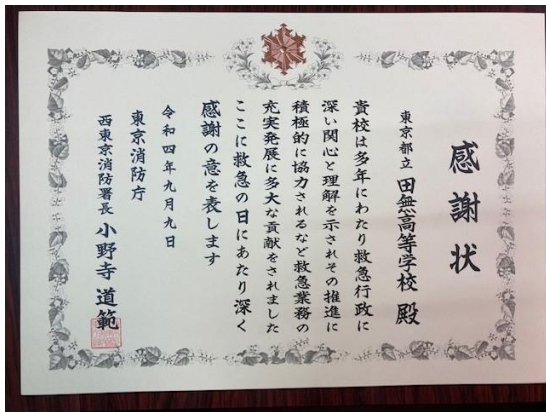 感謝状
東京都立 田無高等学校 殿
貴校は多年にわたり救急行政に
深い関心と理解を示されその推進に
積極的に協力されるなど救急業務の
充実発展に多大な貢献をされました
ここに救急の日にあたり深く
感謝の意を表します
令和四年九月九日
東京消防庁
西東京消防署長 小野寺 道範